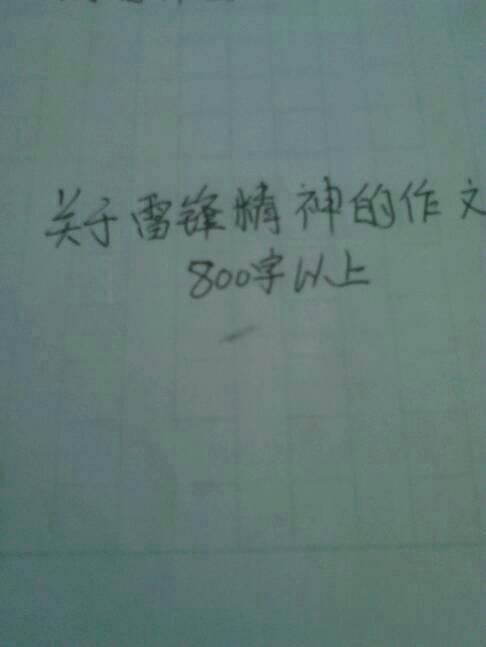 关于雷锋精神的作文
800字以上